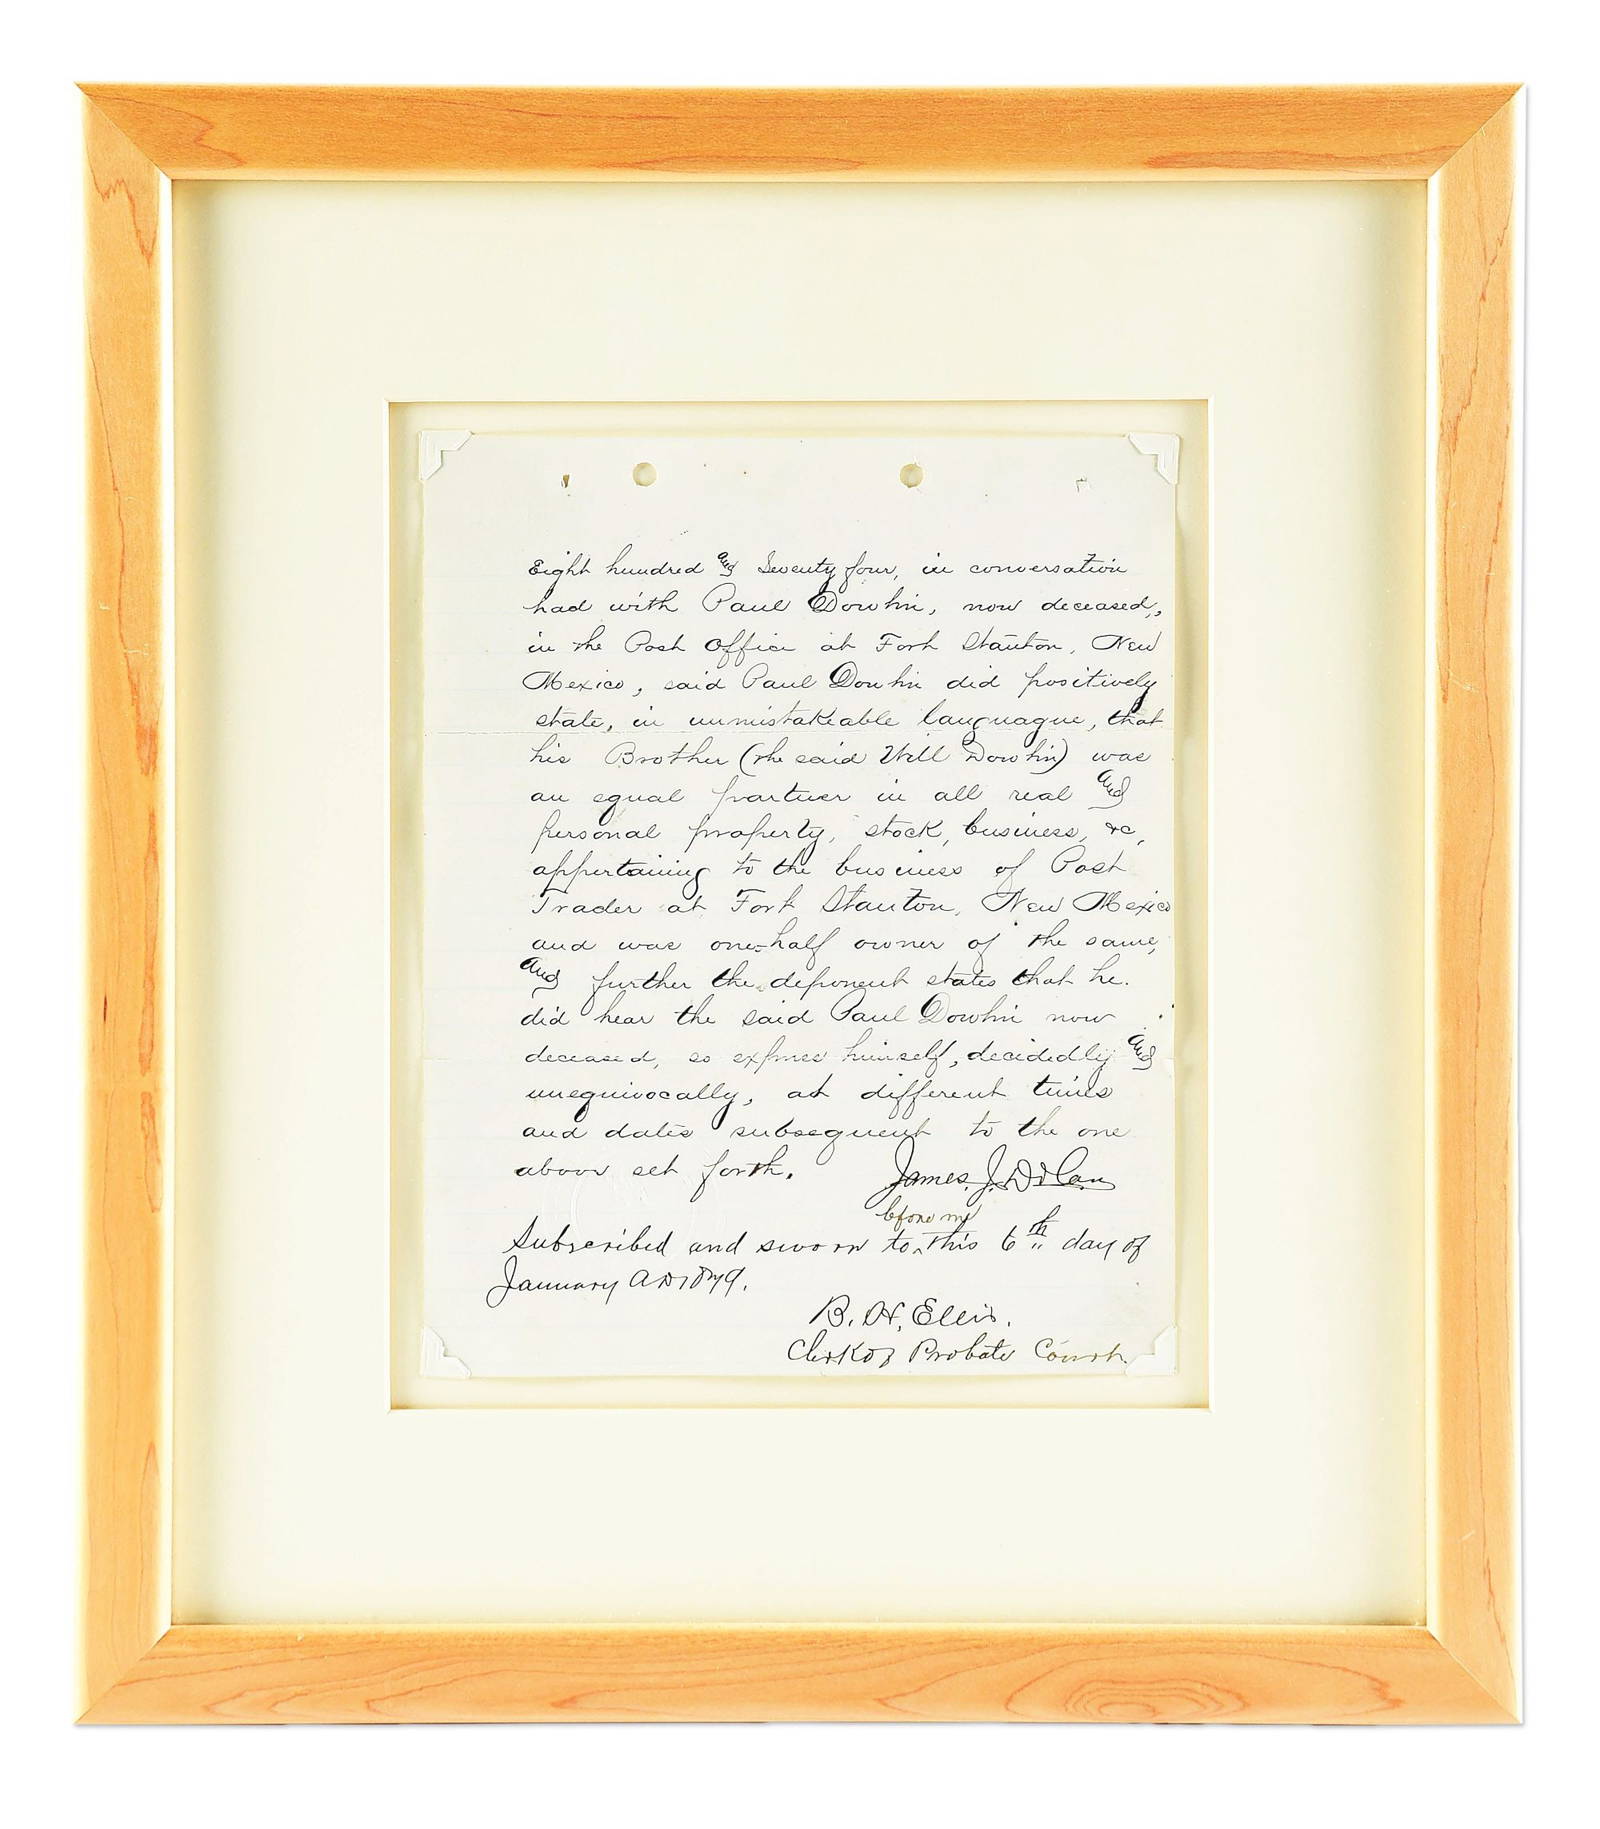 Eight hundred and Seventy four, in conversation
had with Paul Dowlin, now deceased,
in the Post Office at Fort Stanton, New
Mexico, said Paul Dowlin did positively
state, in unmistakeable languague, that
his Brother (he said Will Dowlin) was
an equal partner in all real and
personal property, stock, business, &c,
appertaining to the business of Post
Trader at Fort Stanton, New Mexico
and was one-half owner of the same,
and further the deponent states that he
did hear the said Paul Dowlin now
deceased, so express himself, decidedly and
unequivocally, at different times
and dates subsequent to the one
above set forth. James. J. Dolan
before me
Subscribed and sworn to this 6th day of
January AD 1879.
B. H. Ellis.
Clerk of Probate Court.